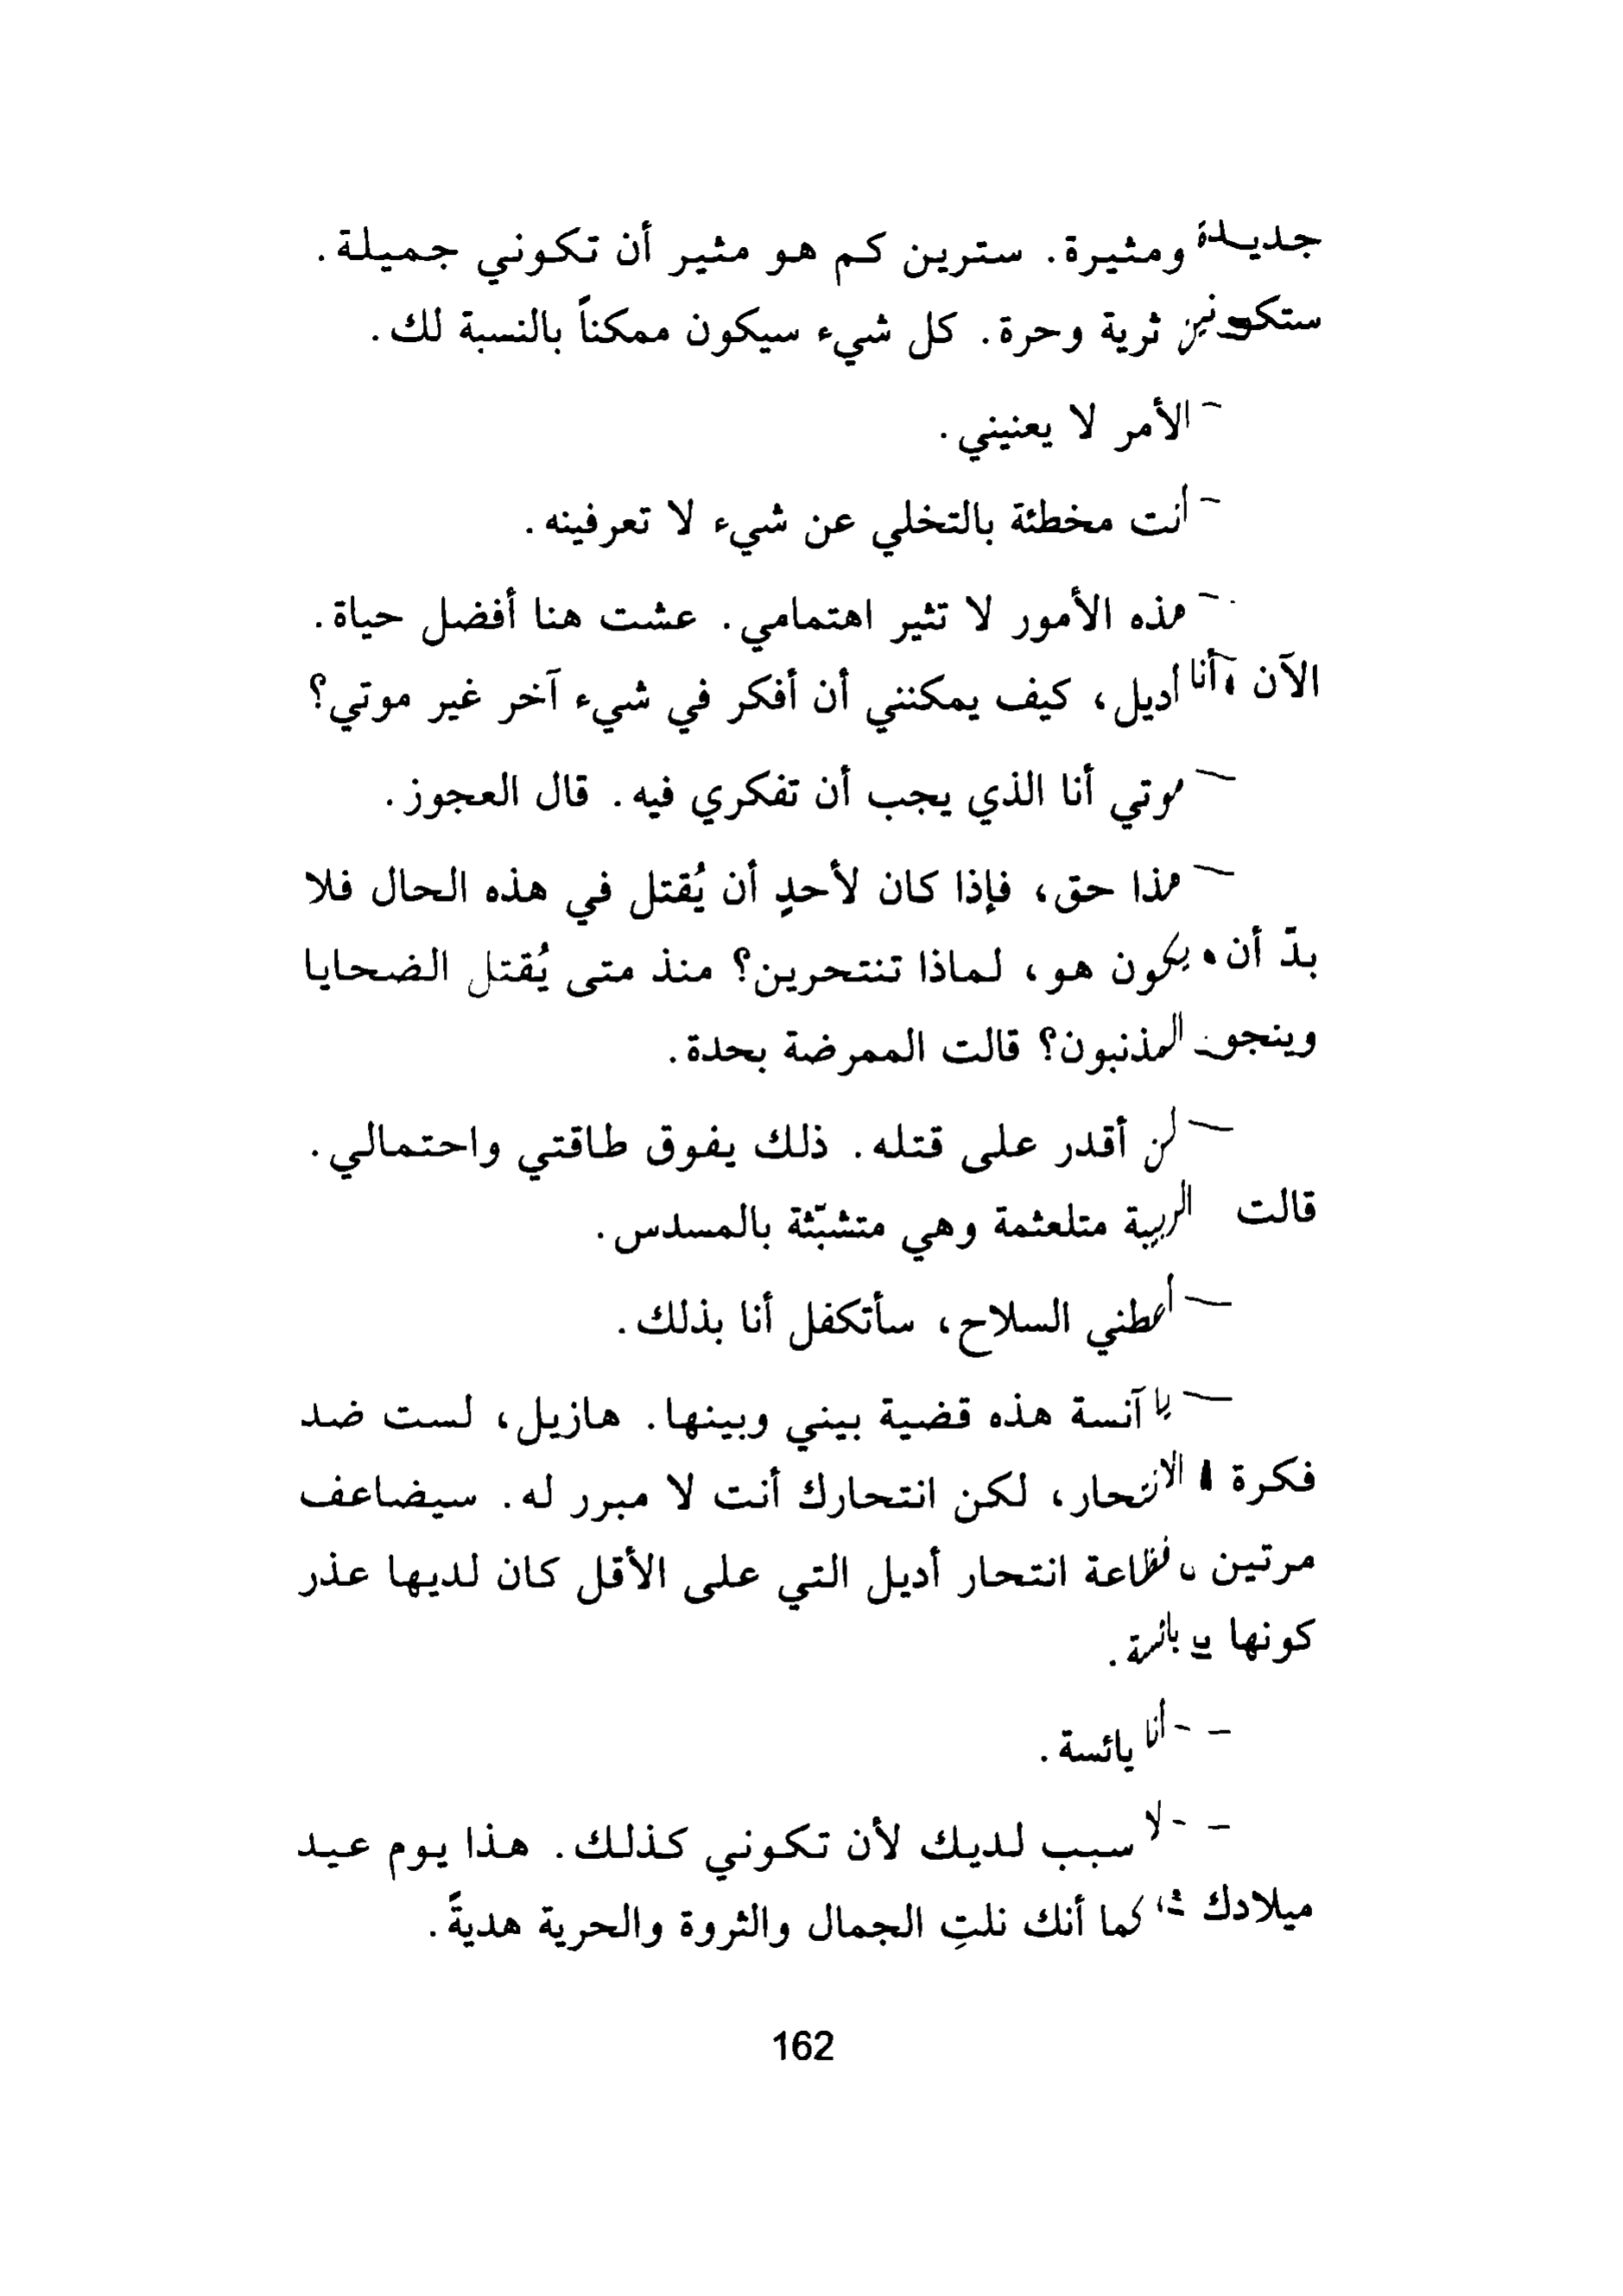 جديدة ومثيرة. سترين كم هو مثير أن تكوني جميلة.
ستكونين ثرية وحرة. كل شيء سيكون ممكناً بالنسبة لك.
– الأمر لا يعنيني.
– أنت مخطئة بالتخلي عن شيء لا تعرفينه.
– هذه الأمور لا تثير اهتمامي. عشت هنا أفضل حياة.
الآن أنا أديل، كيف يمكنني أن أفكر في شيء آخر غير موتي؟
– موتي أنا الذي يجب أن تفكري فيه. قال العجوز.
– هذا حق، فإذا كان لأحدٍ أن يُقتل في هذه الحال فلا
بدّ أن يكون هو، لماذا تنتحرين؟ منذ متى يُقتل الضحايا
وينجو المذنبون؟ قالت الممرضة بحدة.
– لن أقدر على قتله. ذلك يفوق طاقتي واحتمالي.
قالت الربيبة متلعثمة وهي متشبّثة بالمسدس.
– أعطني السلاح، سأتكفل أنا بذلك.
– يا آنسة هذه قضية بيني وبينها. هازيل، لست ضد
فكرة الانتحار، لكن انتحارك أنت لا مبرر له. سيضاعف
مرتين فظاعة انتحار أديل التي على الأقل كان لديها عذر
كونها يائسة.
– أنا يائسة.
– لا سبب لديك لأن تكوني كذلك. هذا يوم عيد
ميلادك كما أنك نلتِ الجمال والثروة والحرية هديةً.
162